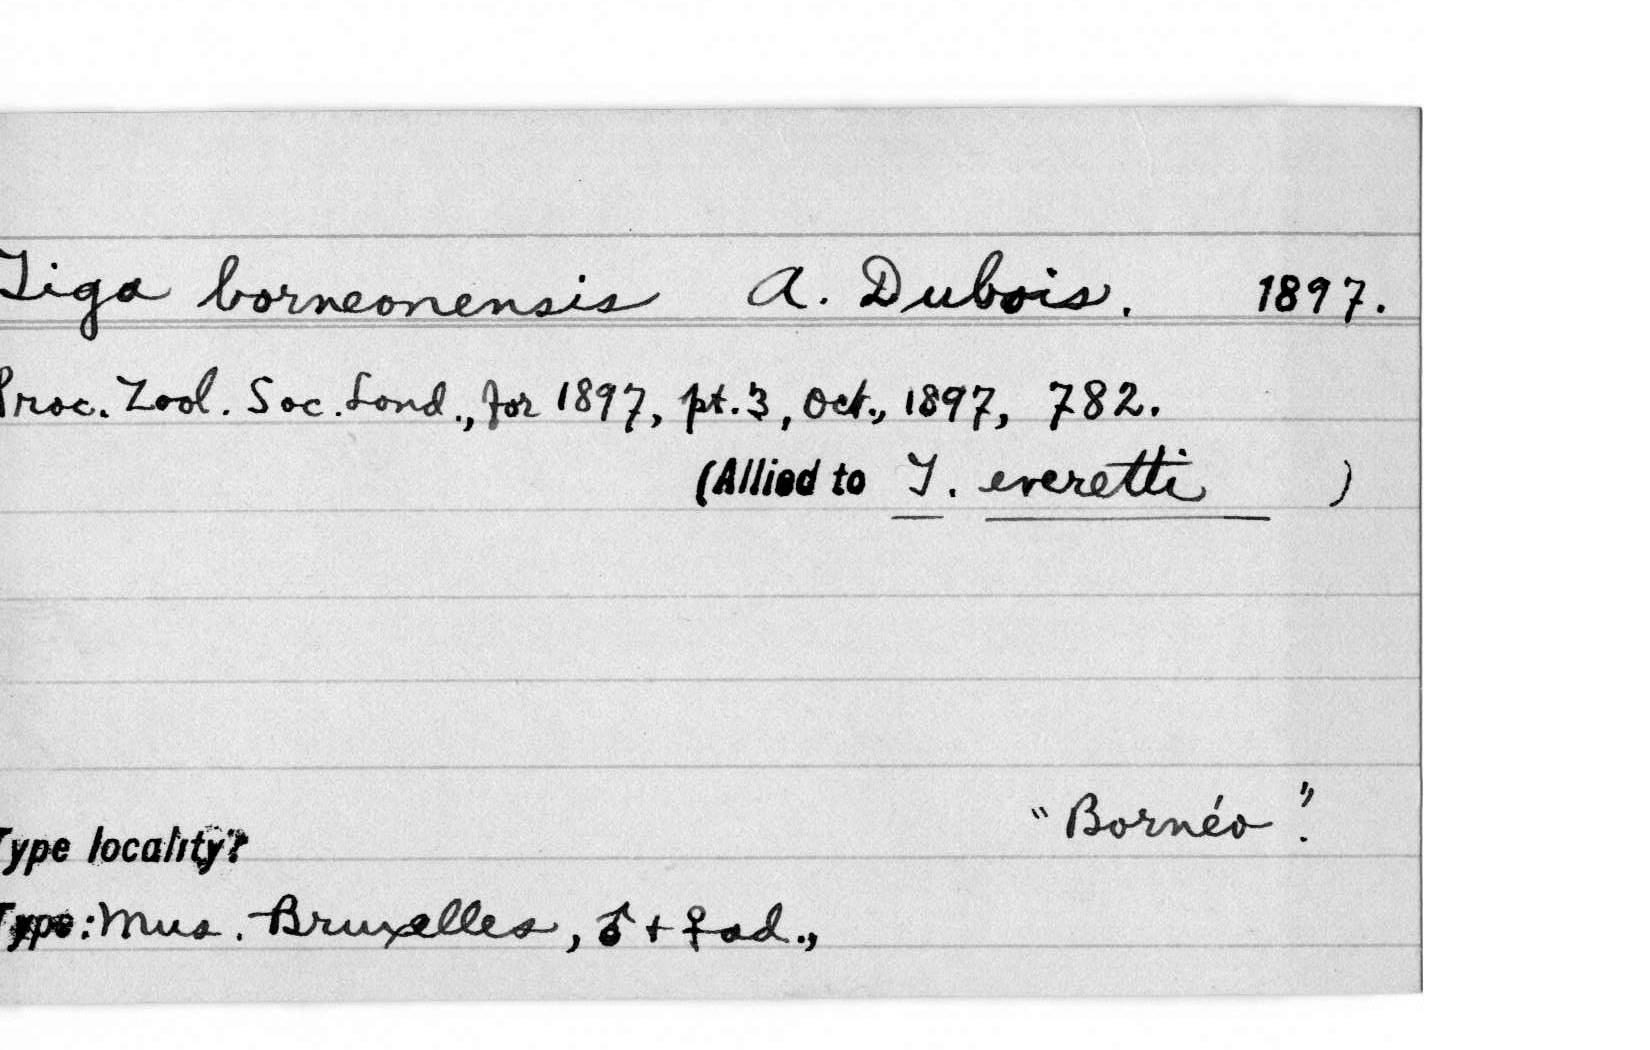 Tiga borneonensis A. Dubois. 1897.
Proc. Zool. Soc. Lond., for 1897, pt. 3, Oct., 1897, 782.
(Allied to T. everetti )
"Bornéo".
Type locality?
Type: Mus. Bruxelles, ♂ + ♀ ad.,